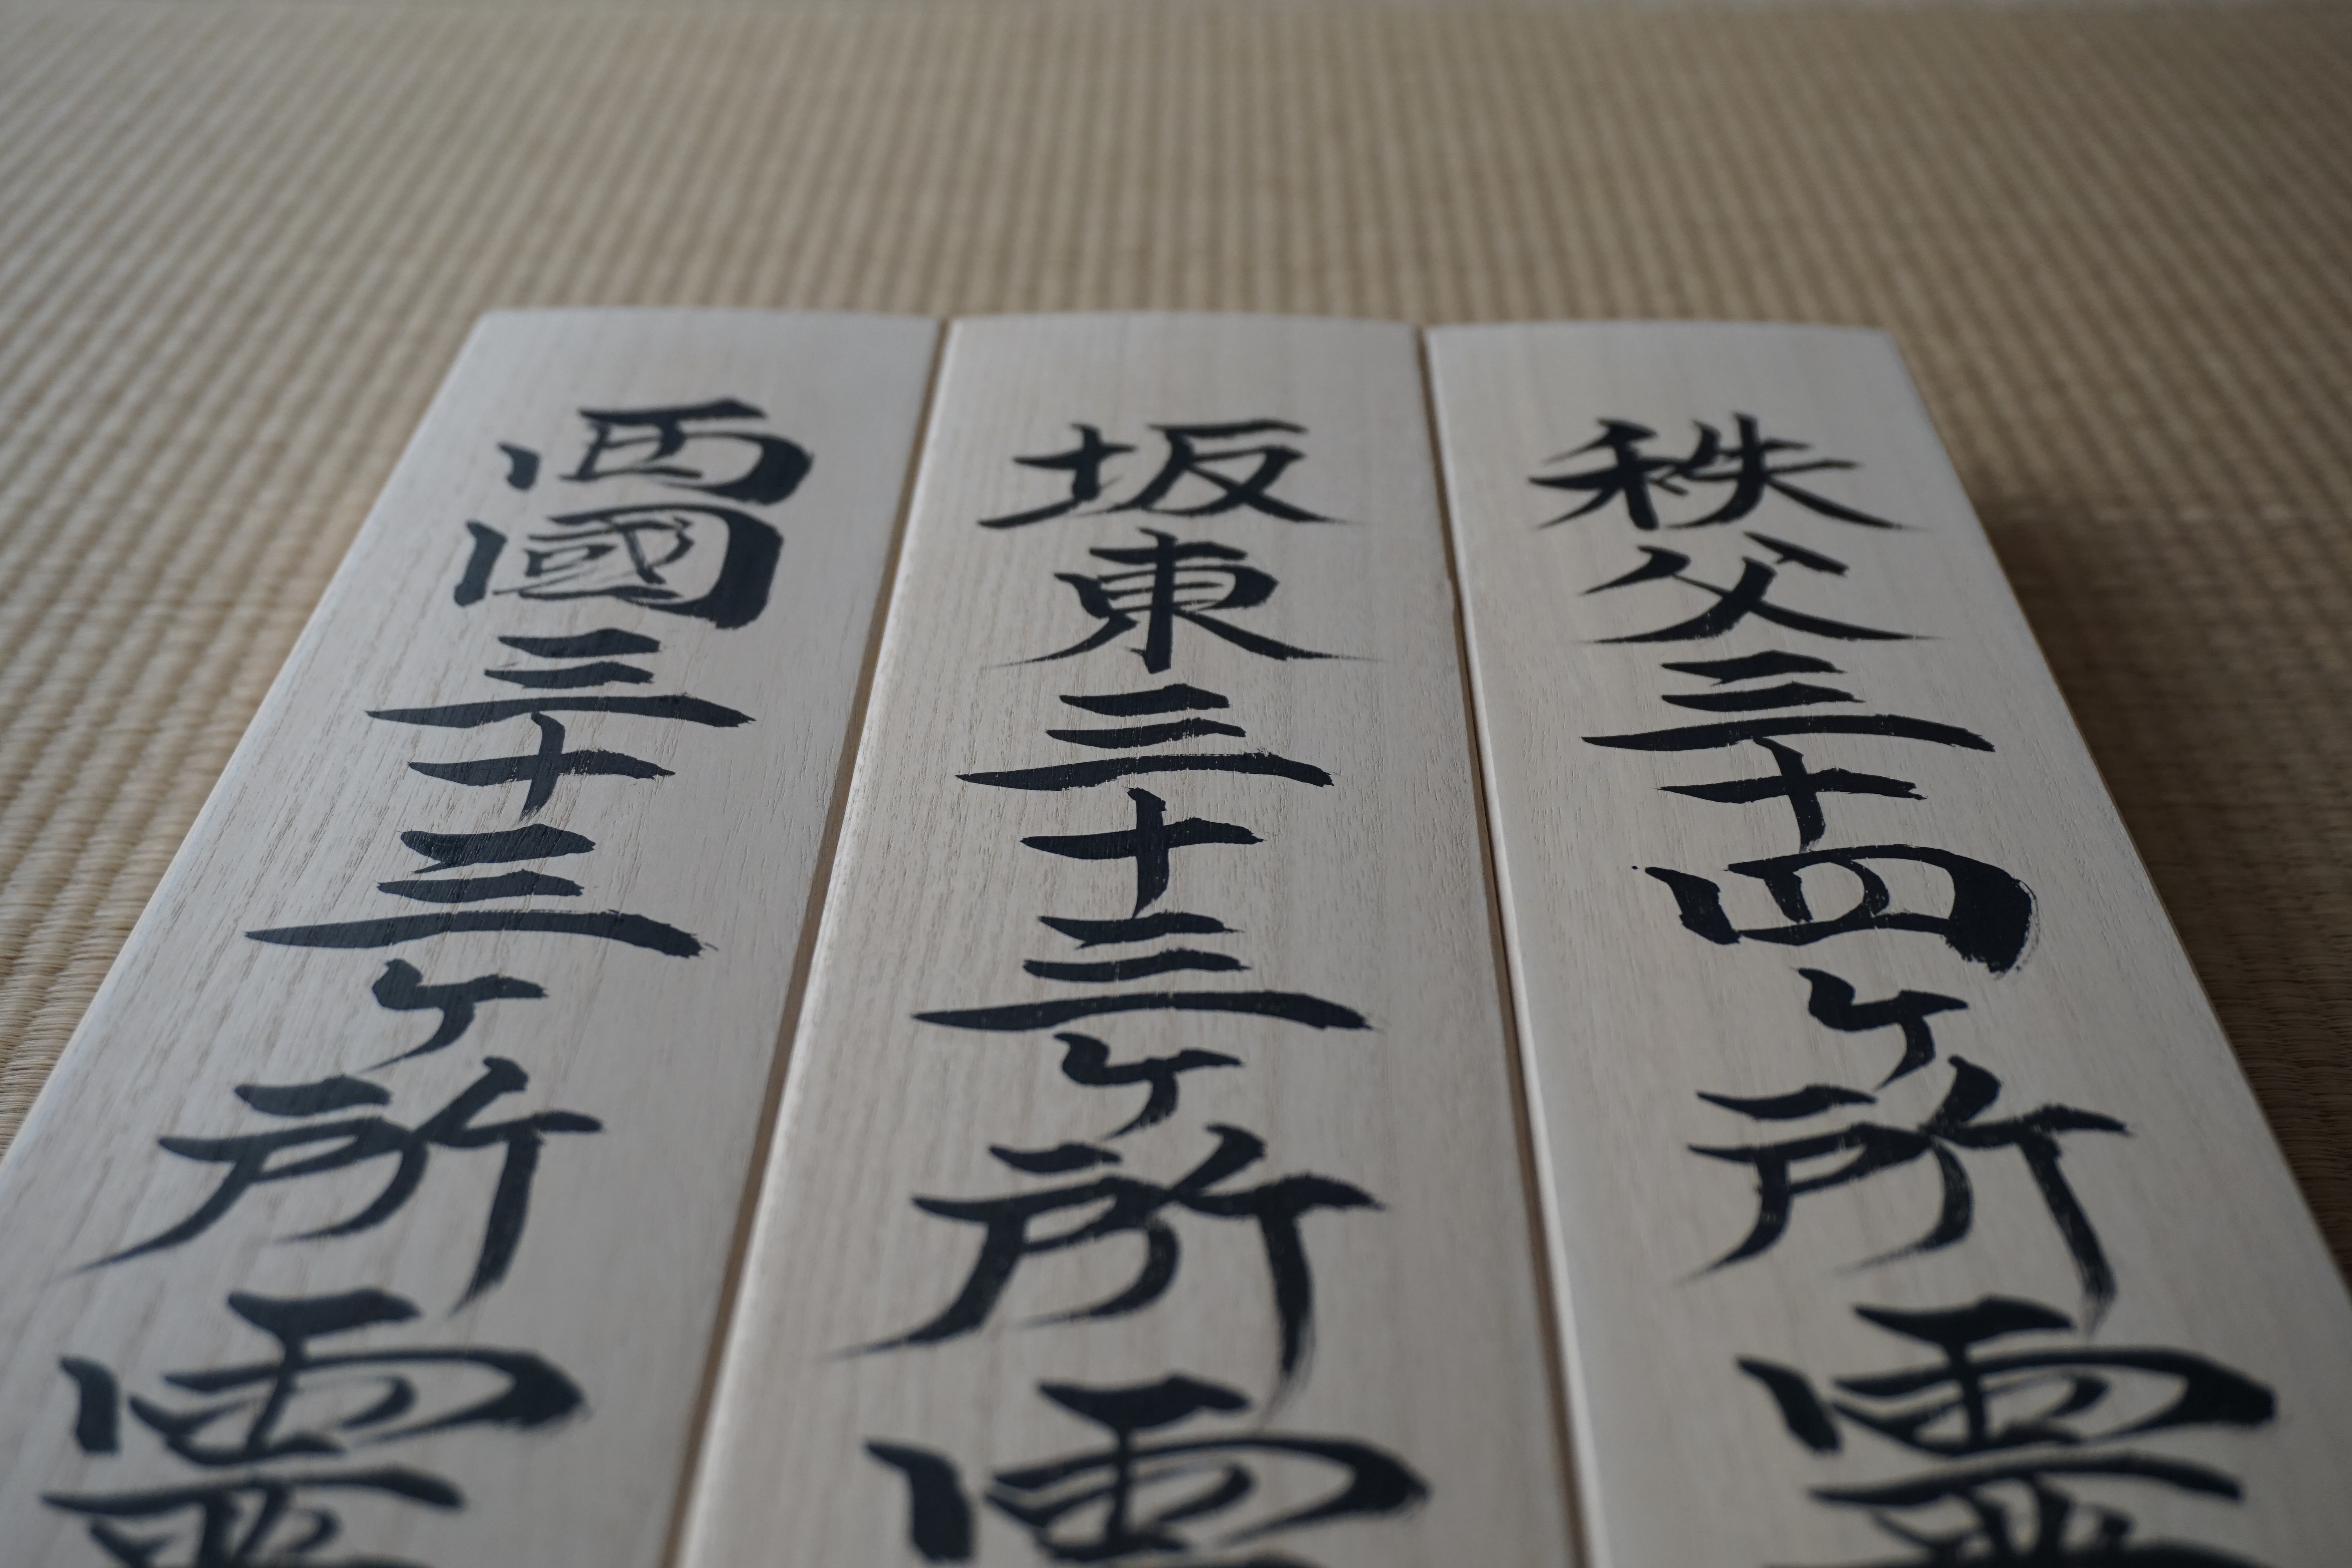 秩父三十四ヶ所霊
坂東三十三ヶ所
西國三十三ヶ所霊